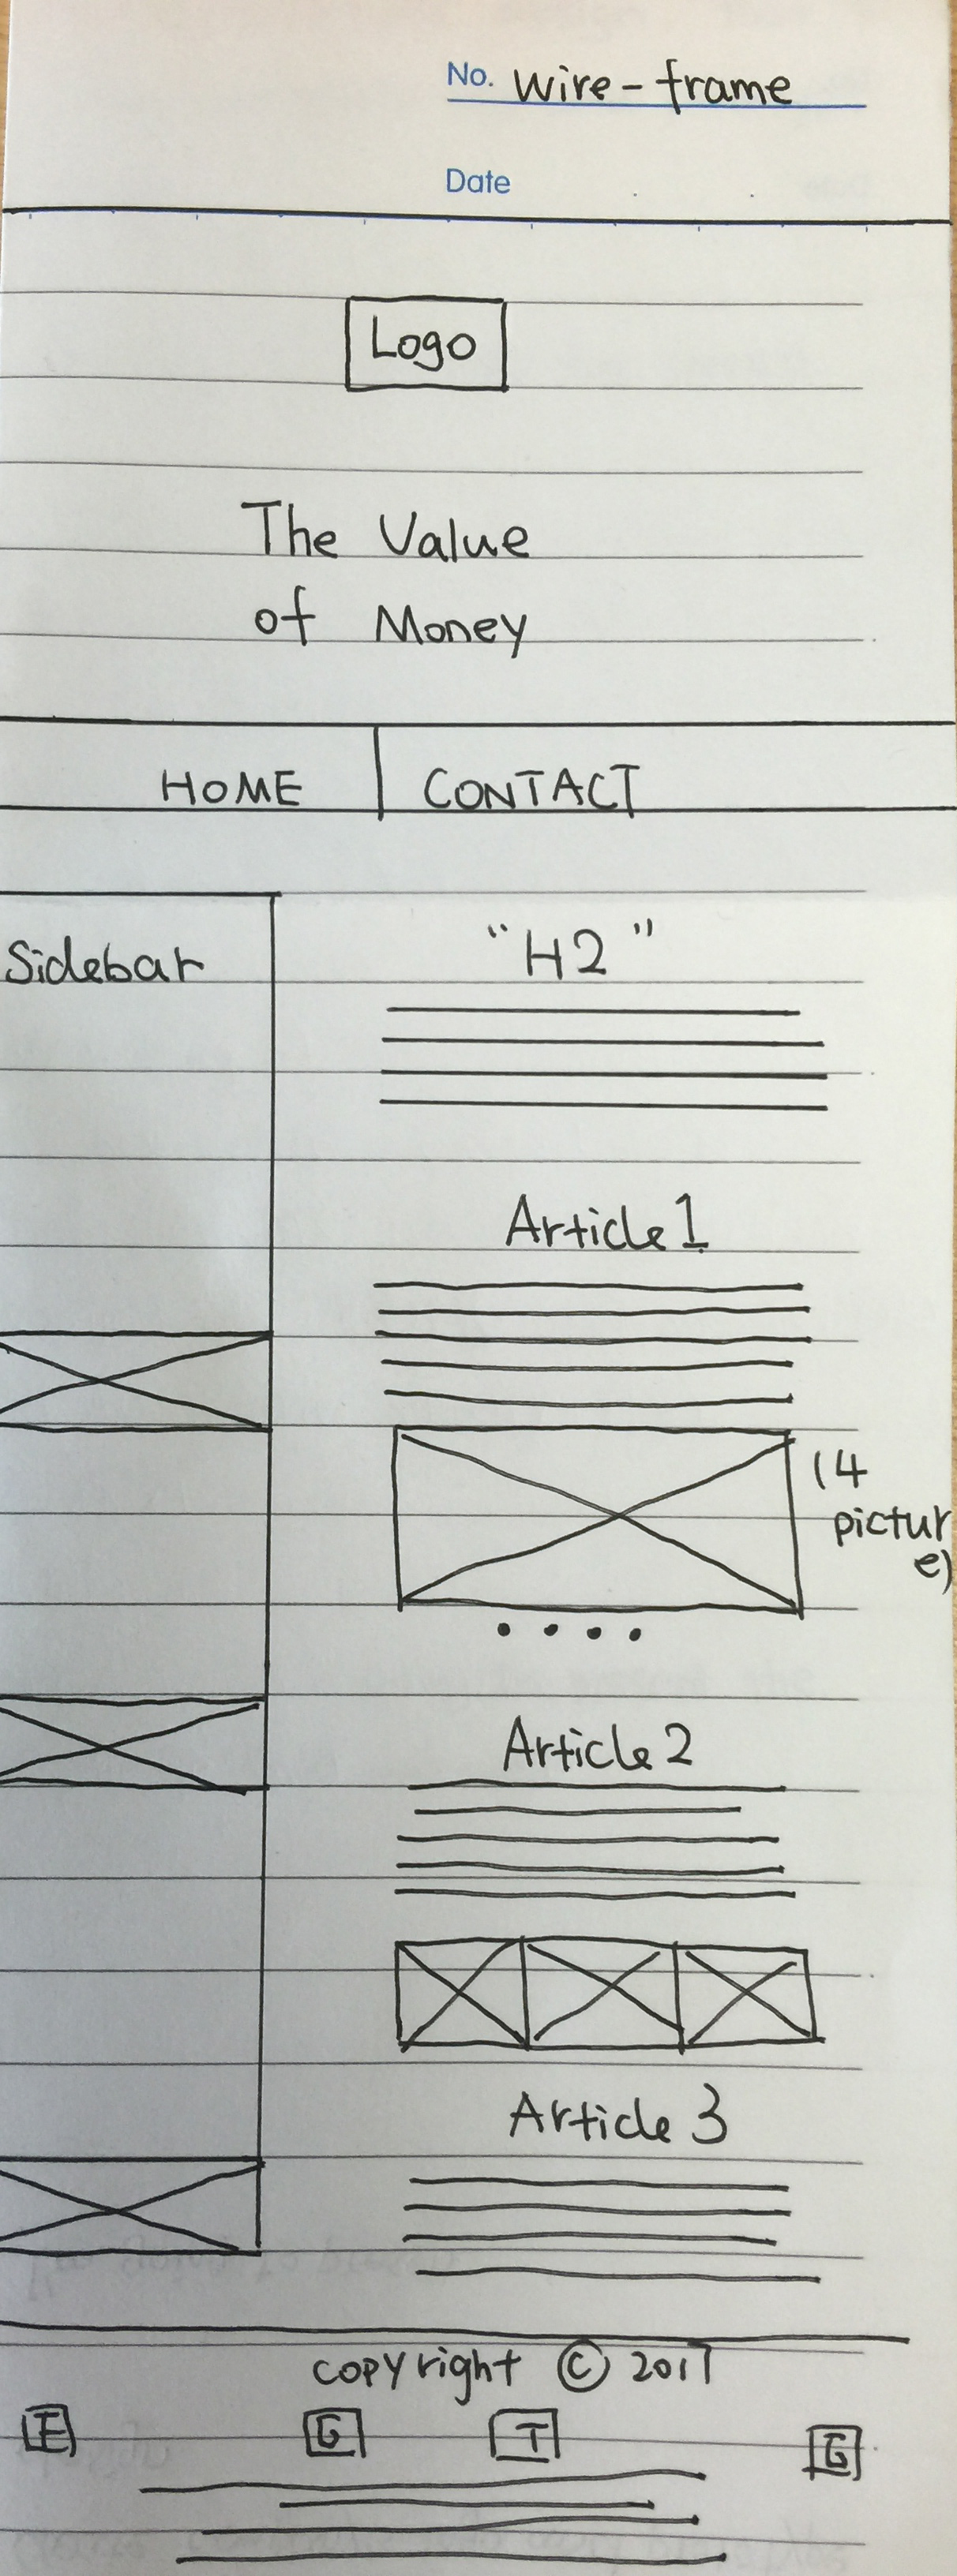 No. Wire-frame
Date
Logo
The Value
of Money
HOME CONTACT
Sidebar
"H2"
Article 1
(4
picture
e)
Article 2
Article 3
COPYright © 2017
F G T G